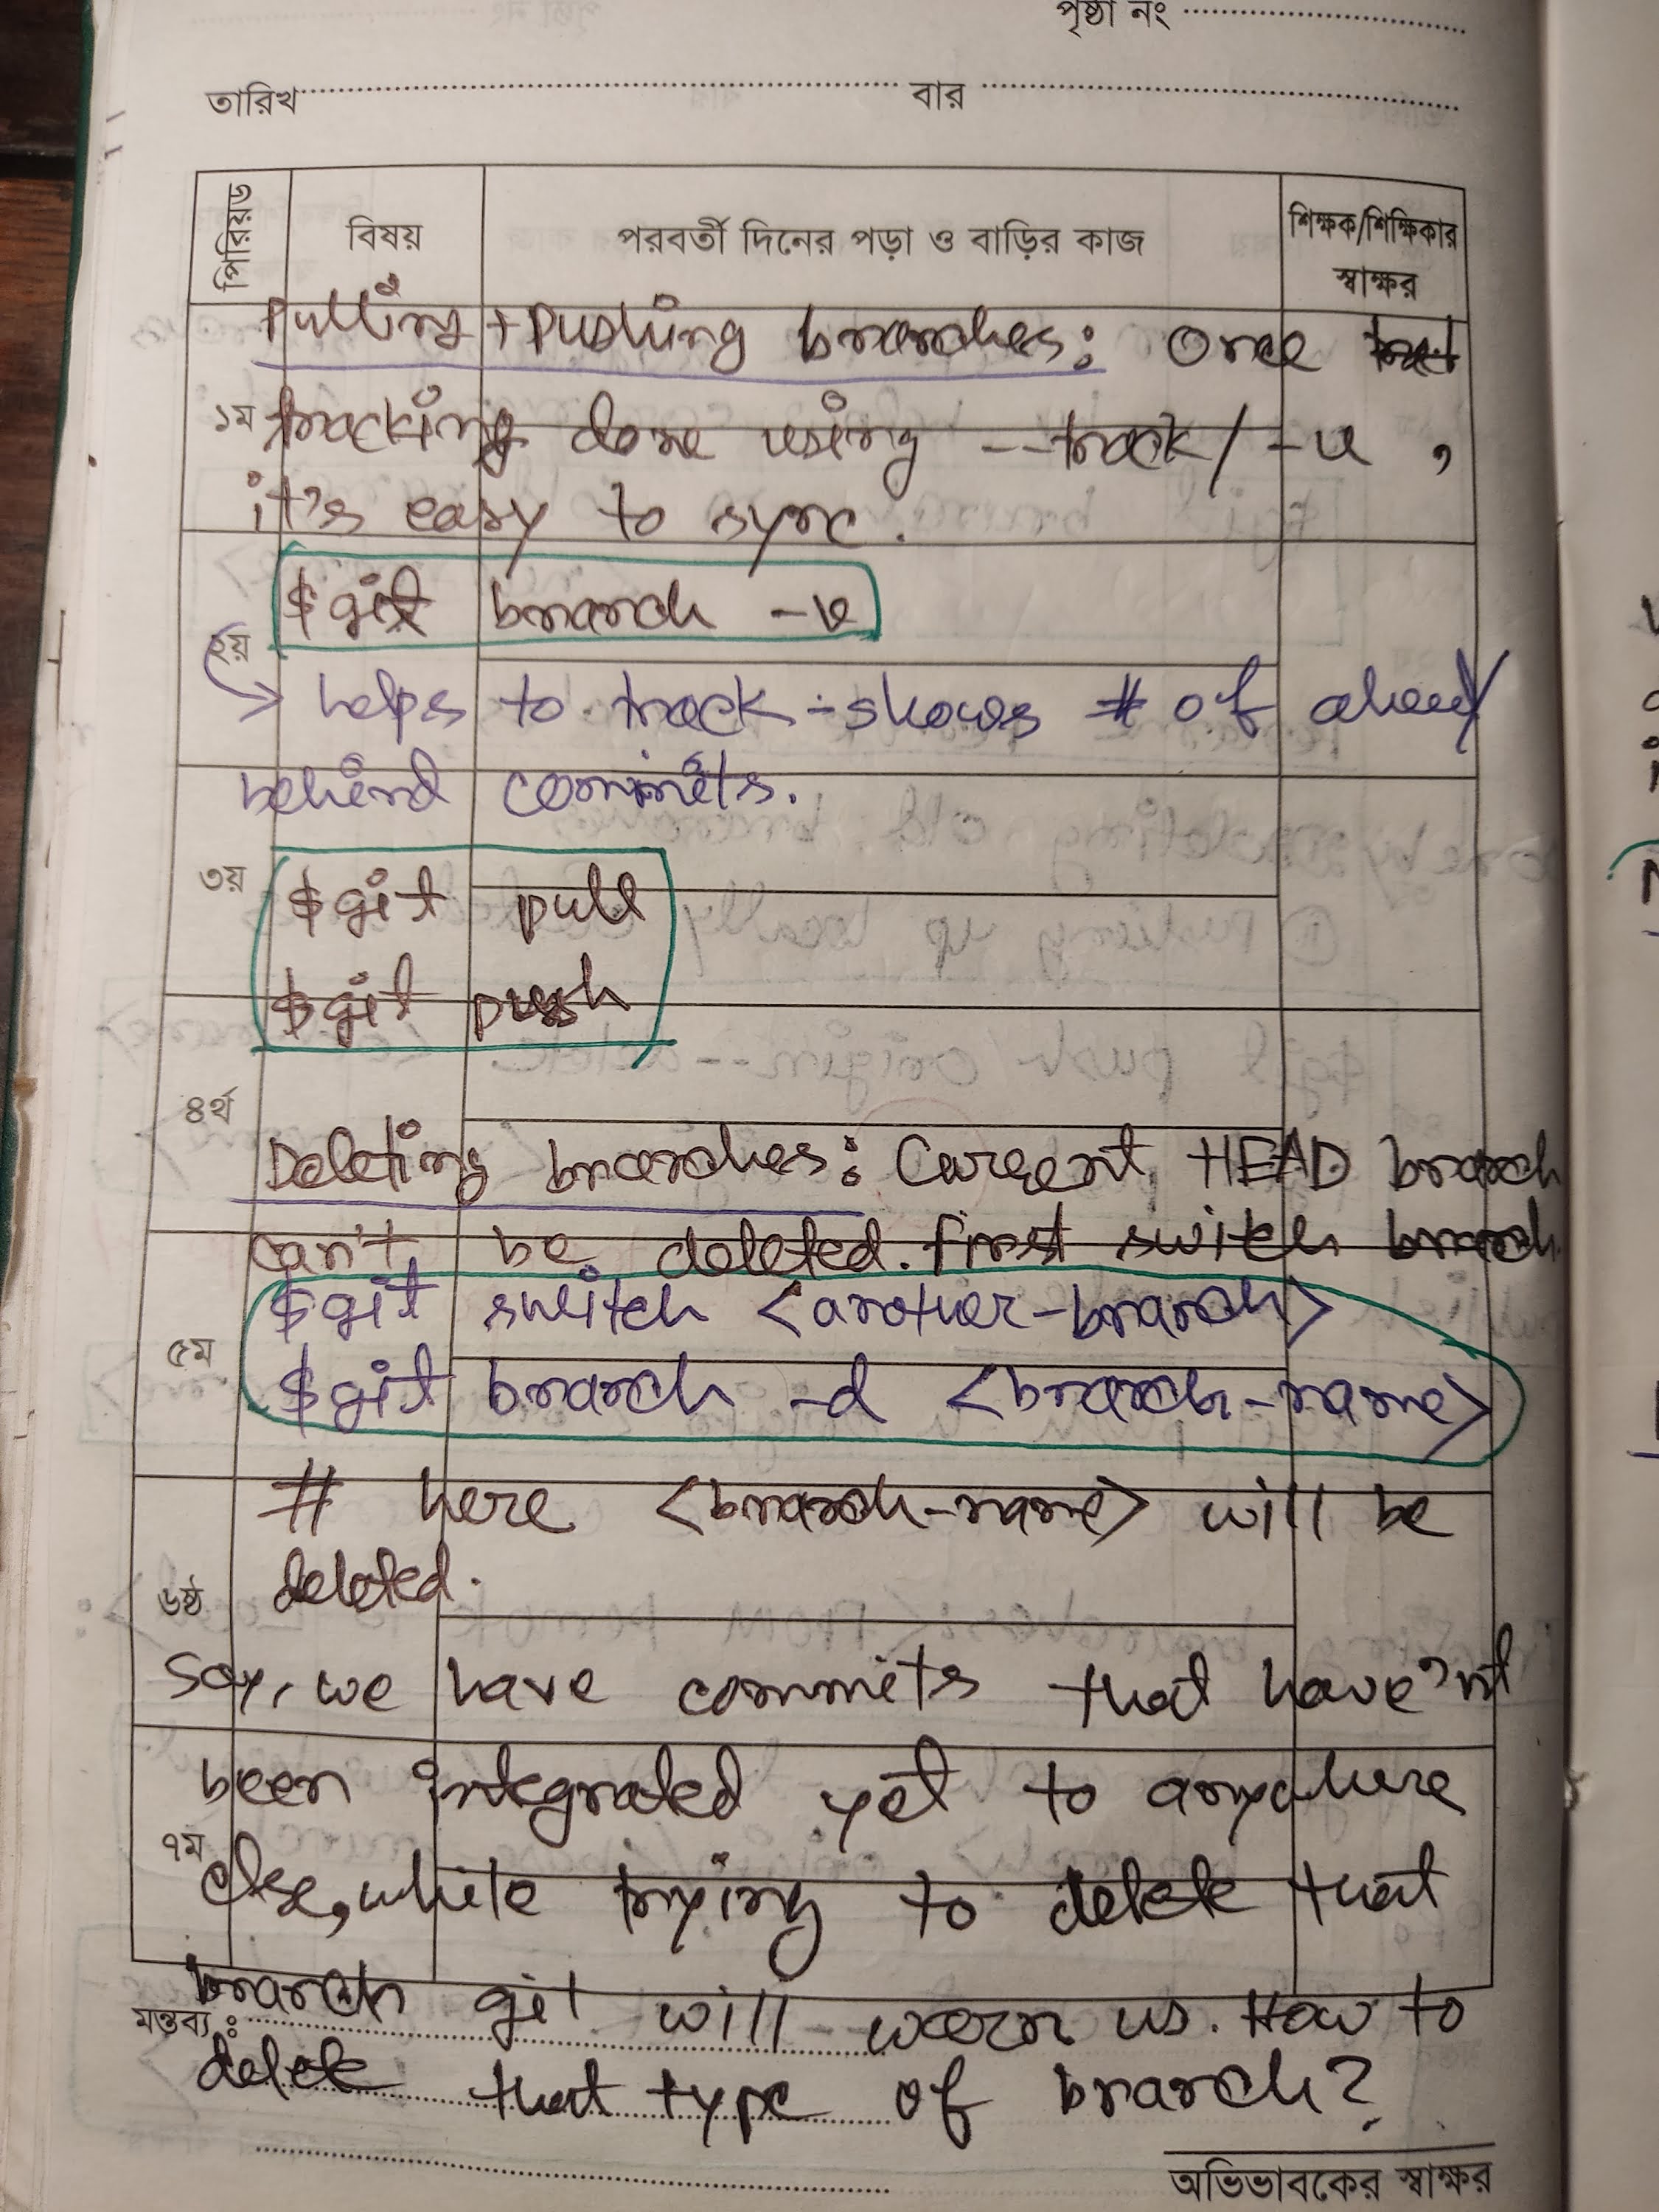 পৃষ্ঠা নং
তারিখ বার
পিরিয়ড বিষয় পরবর্তী দিনের পড়া ও বাড়ির কাজ শিক্ষক/শিক্ষিকার স্বাক্ষর
Pulling + Pushing branches: Once
১ম tracking done using --track/-u,
it's easy to sync.
$git branch -v
২য়
helps to track - shows # of ahead/
behind commits.
৩য়
$git pull
$git push
৪র্থ
Deleting branches: Current HEAD branch
can't be deleted. First switch branch
$git switch <another-branch>
৫ম
$git branch -d <branch-name>
# here <branch-name> will be
৬ষ্ঠ deleted.
Say, we have commits that have'nt
been integrated yet to anywhere
৭ম else, while trying to delete that
branch git will warn us. How to
মন্তব্য :
delete that type of branch?
অভিভাবকের স্বাক্ষর